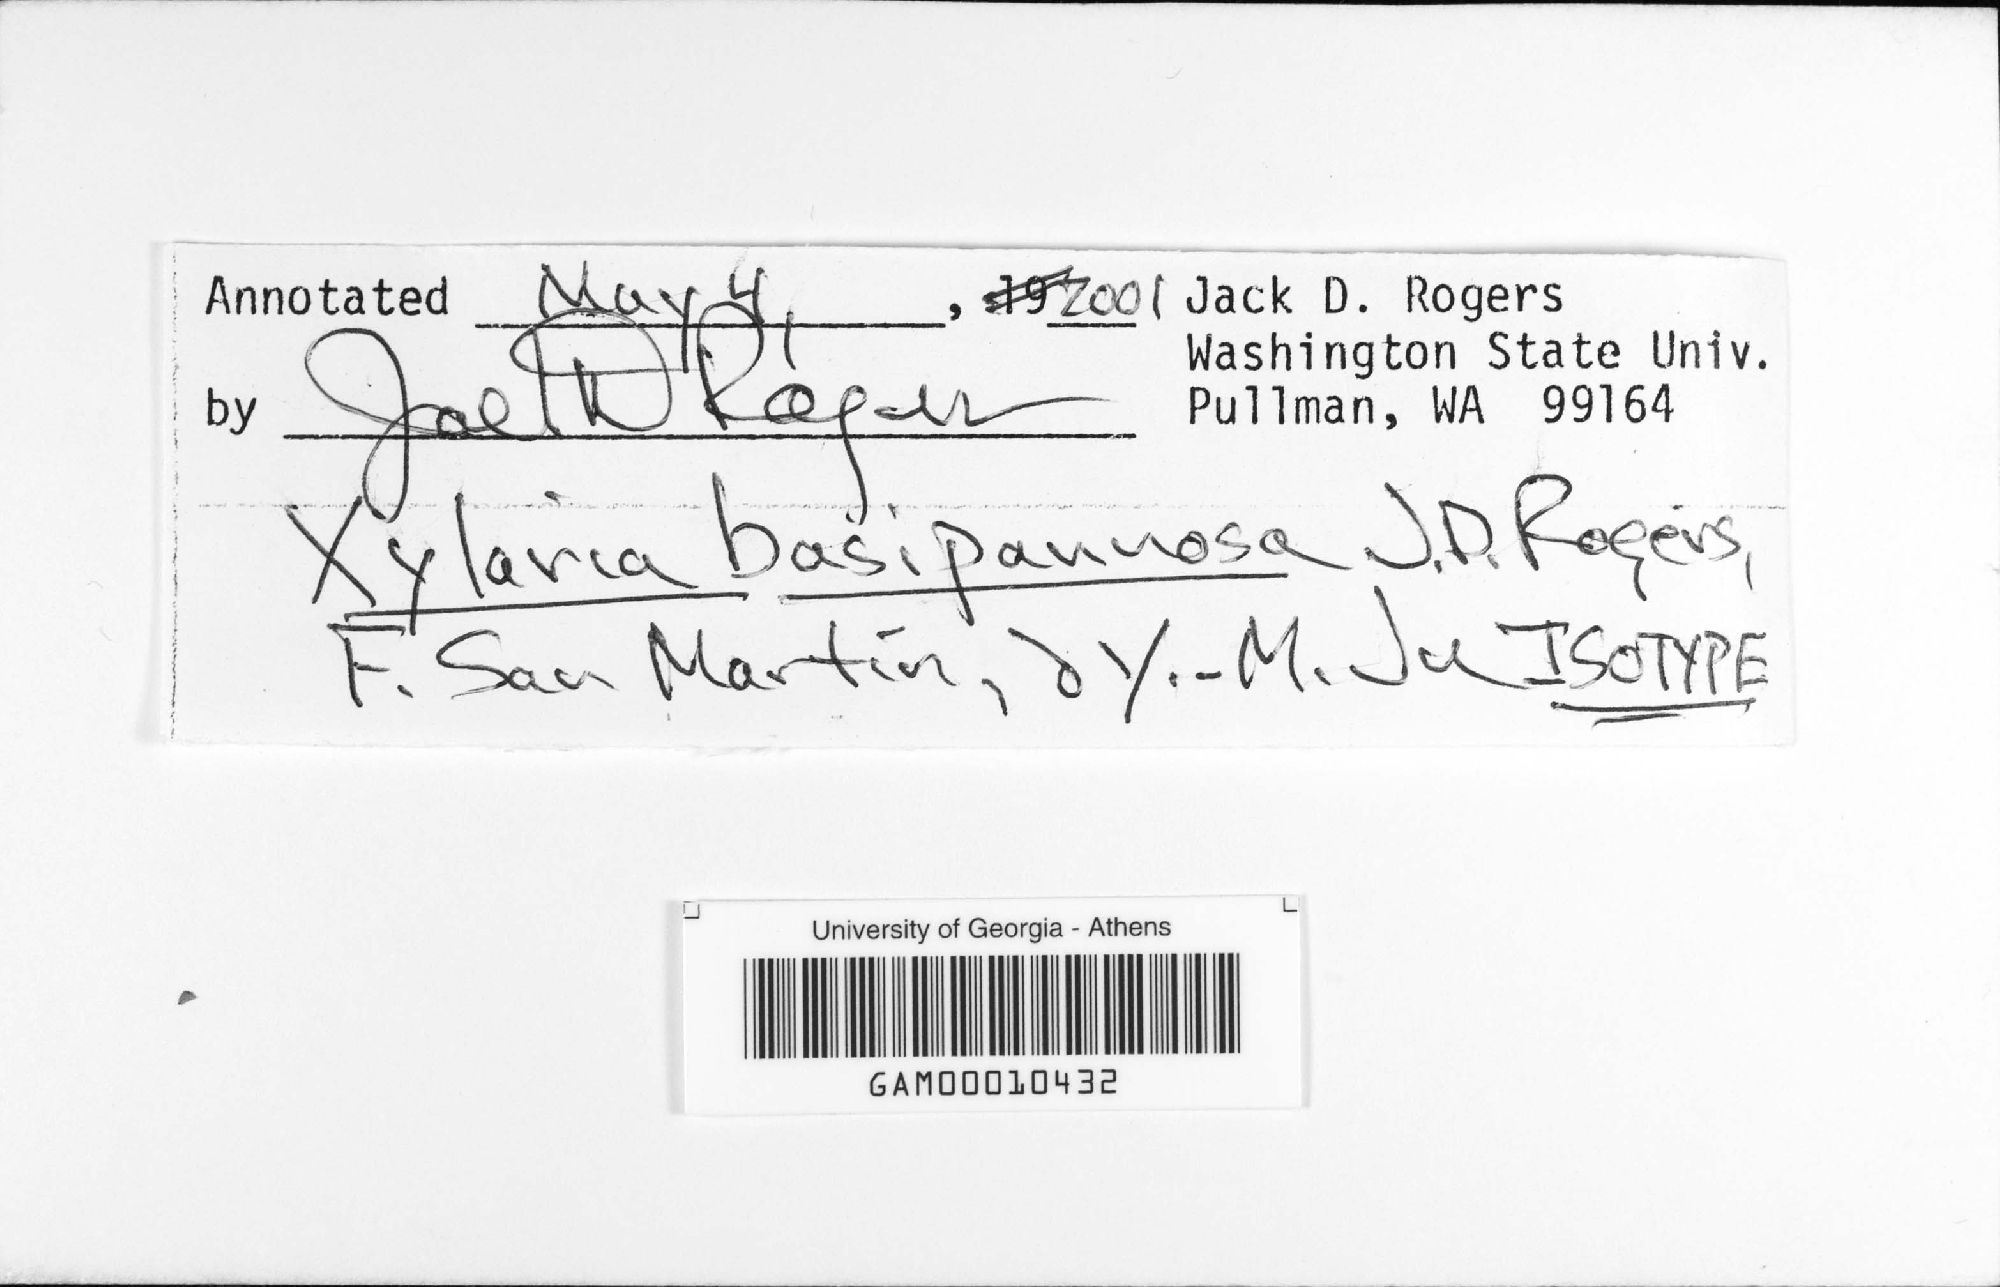 Annotated May 4, , 19 2001 Jack D. Rogers
Washington State Univ.
by Jack D Rogers Pullman, WA 99164
Xylaria basipannosa J.D. Rogers,
F. San Martín, & Y.-M. Ju ISOTYPE
University of Georgia - Athens
GAM00010432